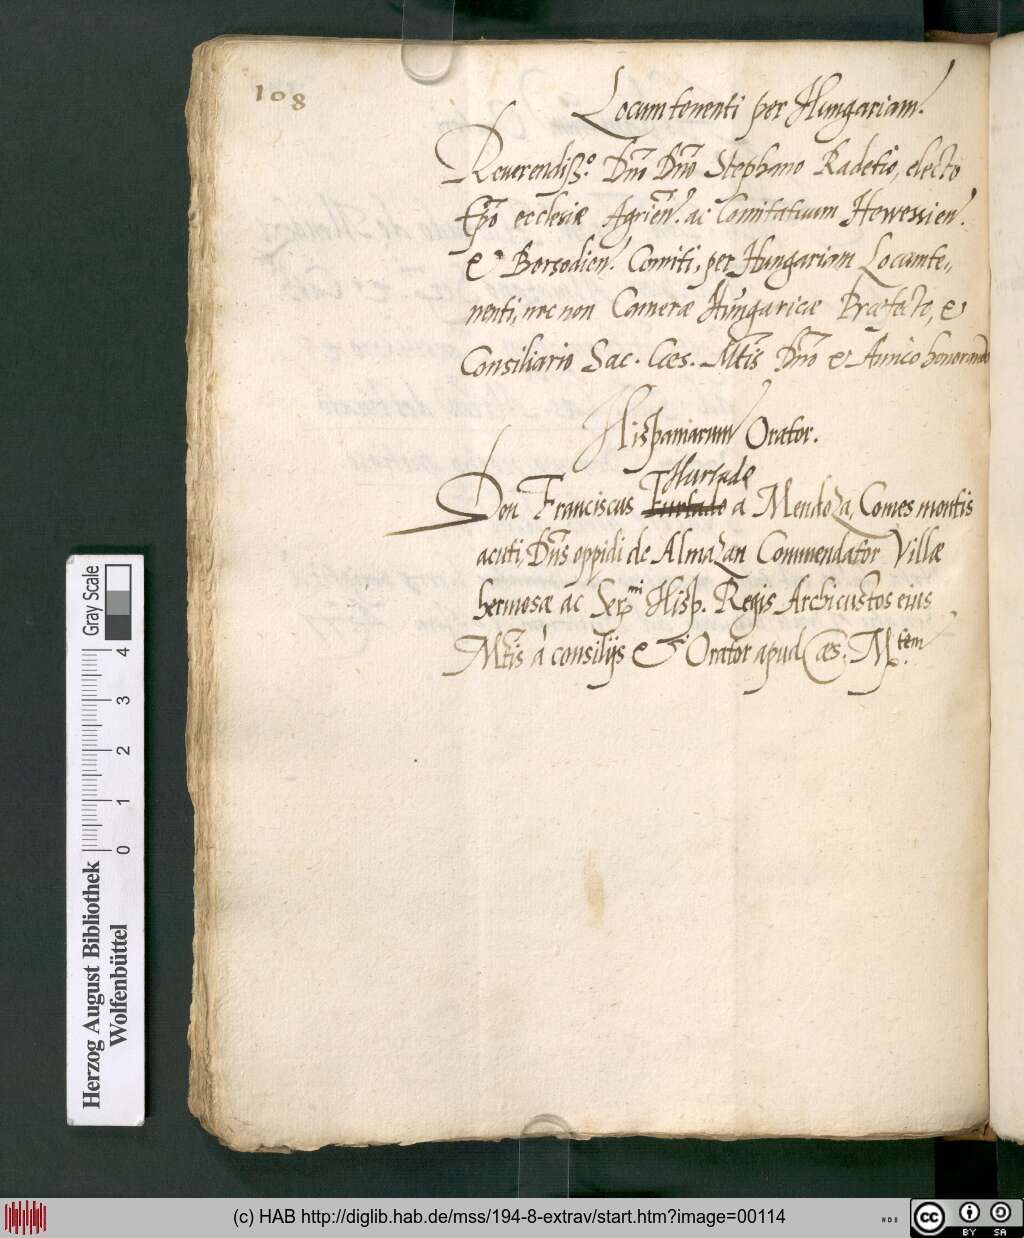 108
Locumtenenti per Hungariam.
Reverendiss.º Dño Dño Stephano Radetio, electo
Epõ ecclesiæ Agrien̄. ac Comitatuum Hewessien̄.
et Borsodien̄. Comiti, per Hungariam Locumte„
nenti, nec non Cameræ Hungaricæ Præfecto, et
Consiliario Sac. Cæs. Mtis Dño et Amico honorando
Hispaniarum Orator.
Hurtado
Don Franciscus Furtado a Mendoza, Comes montis
acuti, Dñs oppidi de Almazan Commendator Villæ
hermosæ ac Ser.mi Hisp. Regis Archicustos eius
Mtis à consilijs et Orator apud Cæs. M.tem
Gray Scale
4
3
2
1
0
Herzog August Bibliothek
Wolfenbüttel
(c) HAB http://diglib.hab.de/mss/194-8-extrav/start.htm?image=00114
WDB
cc
BY SA